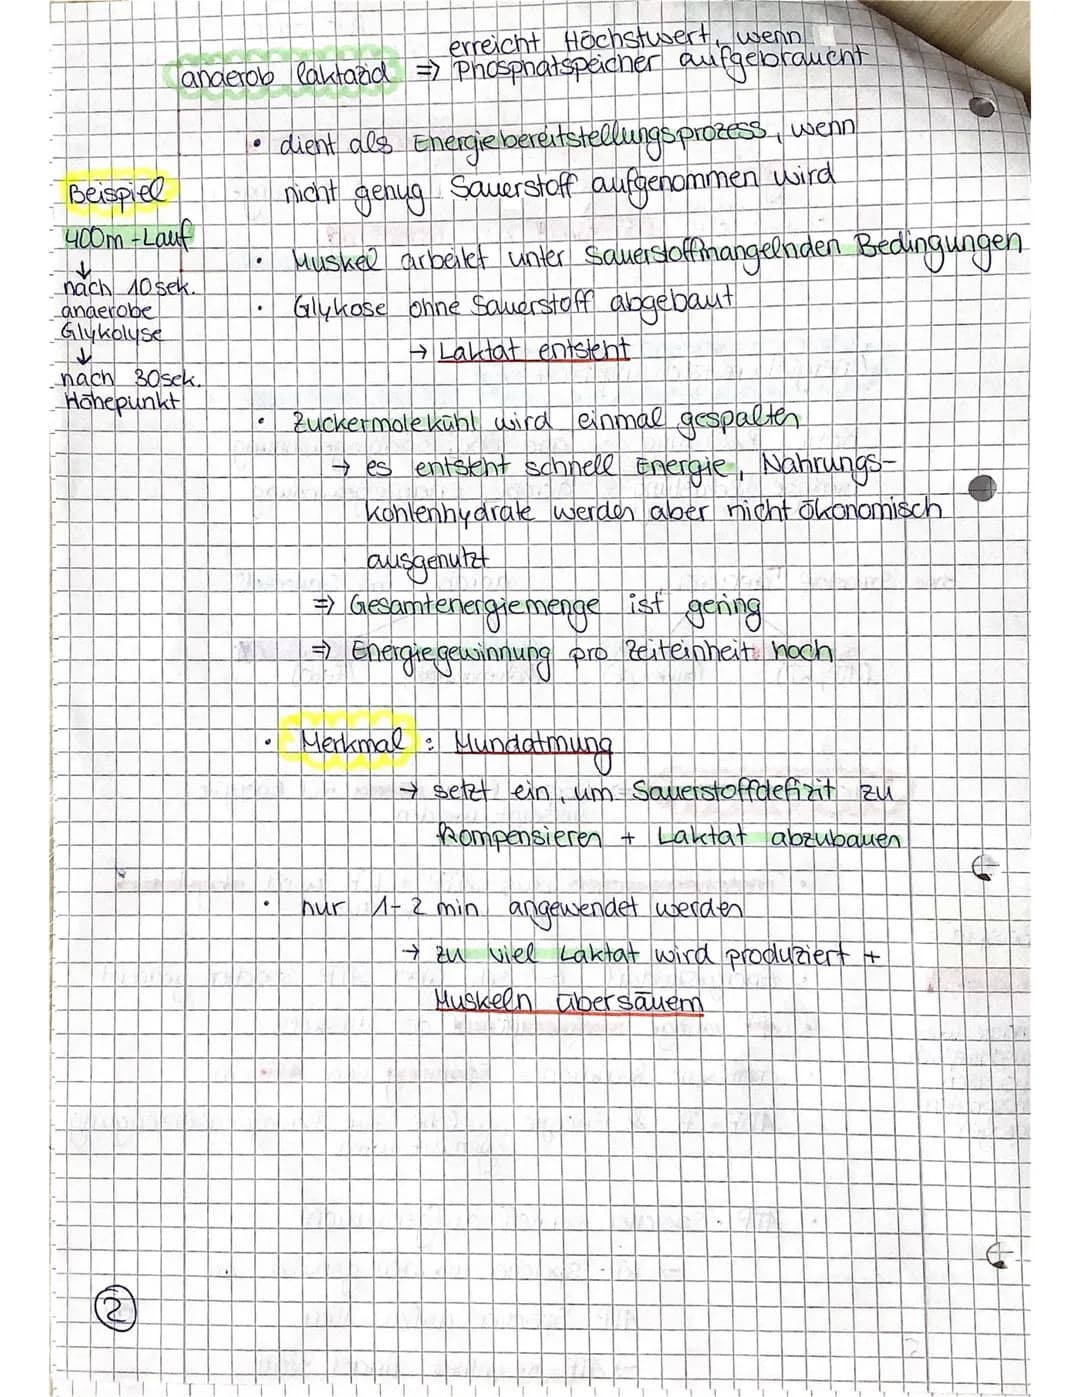 erreicht Höchstwert, wenn
anaerob laktazid => Phosphatspeicher aufgebraucht
• dient als Energiebereitstellungsprozess, wenn
nicht genug Sauerstoff aufgenommen wird
Beispiel
400m-Lauf
↓
nach 10sek.
anaerobe
Glykolyse
↓
nach 30sek.
Höhepunkt
• Muskel arbeitet unter Sauerstoffmangelnden Bedingungen
• Glykose ohne Sauerstoff abgebaut
→ Laktat entsteht
• Zuckermolekühl wird einmal gespalten
→ es entsteht schnell Energie, Nahrungs-
kohlenhydrate werden aber nicht ökonomisch
ausgenutzt
=> Gesamtenergiemenge ist gering
=> Energiegewinnung pro Zeiteinheit hoch
• Merkmal: Mundatmung
→ setzt ein, um Sauerstoffdefizit zu
kompensieren + Laktat abzubauen
• nur 1-2 min angewendet werden
→ zu viel Laktat wird produziert +
Muskeln übersäuern
2